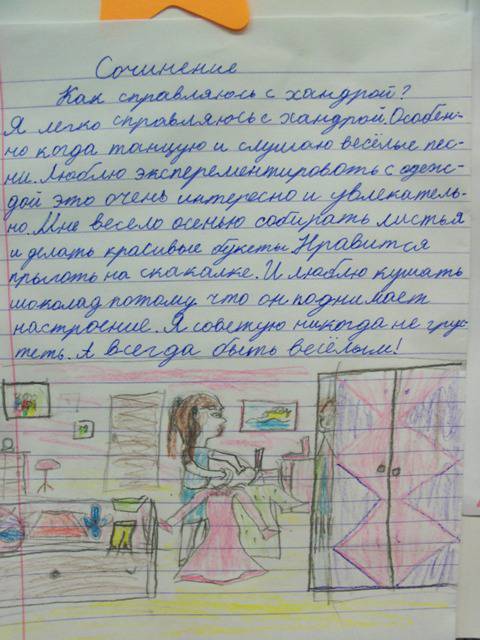 Сочинение
Как справляюсь с хандрой?
Я легко справляюсь с хандрой. Особен-
но когда танцую и слушаю весёлые пес-
ни. Люблю эксперементировоть с одеж-
дой это очень интересно и увлекатель-
но. Мне весело осенью собирать листья
и делать красивые букеты. Нравится
прыготь на скакалке. И люблю кушать
шоколад потому что он поднимает
настроение. Я советую никогда не грус
теть. А всегда быть весёлым!